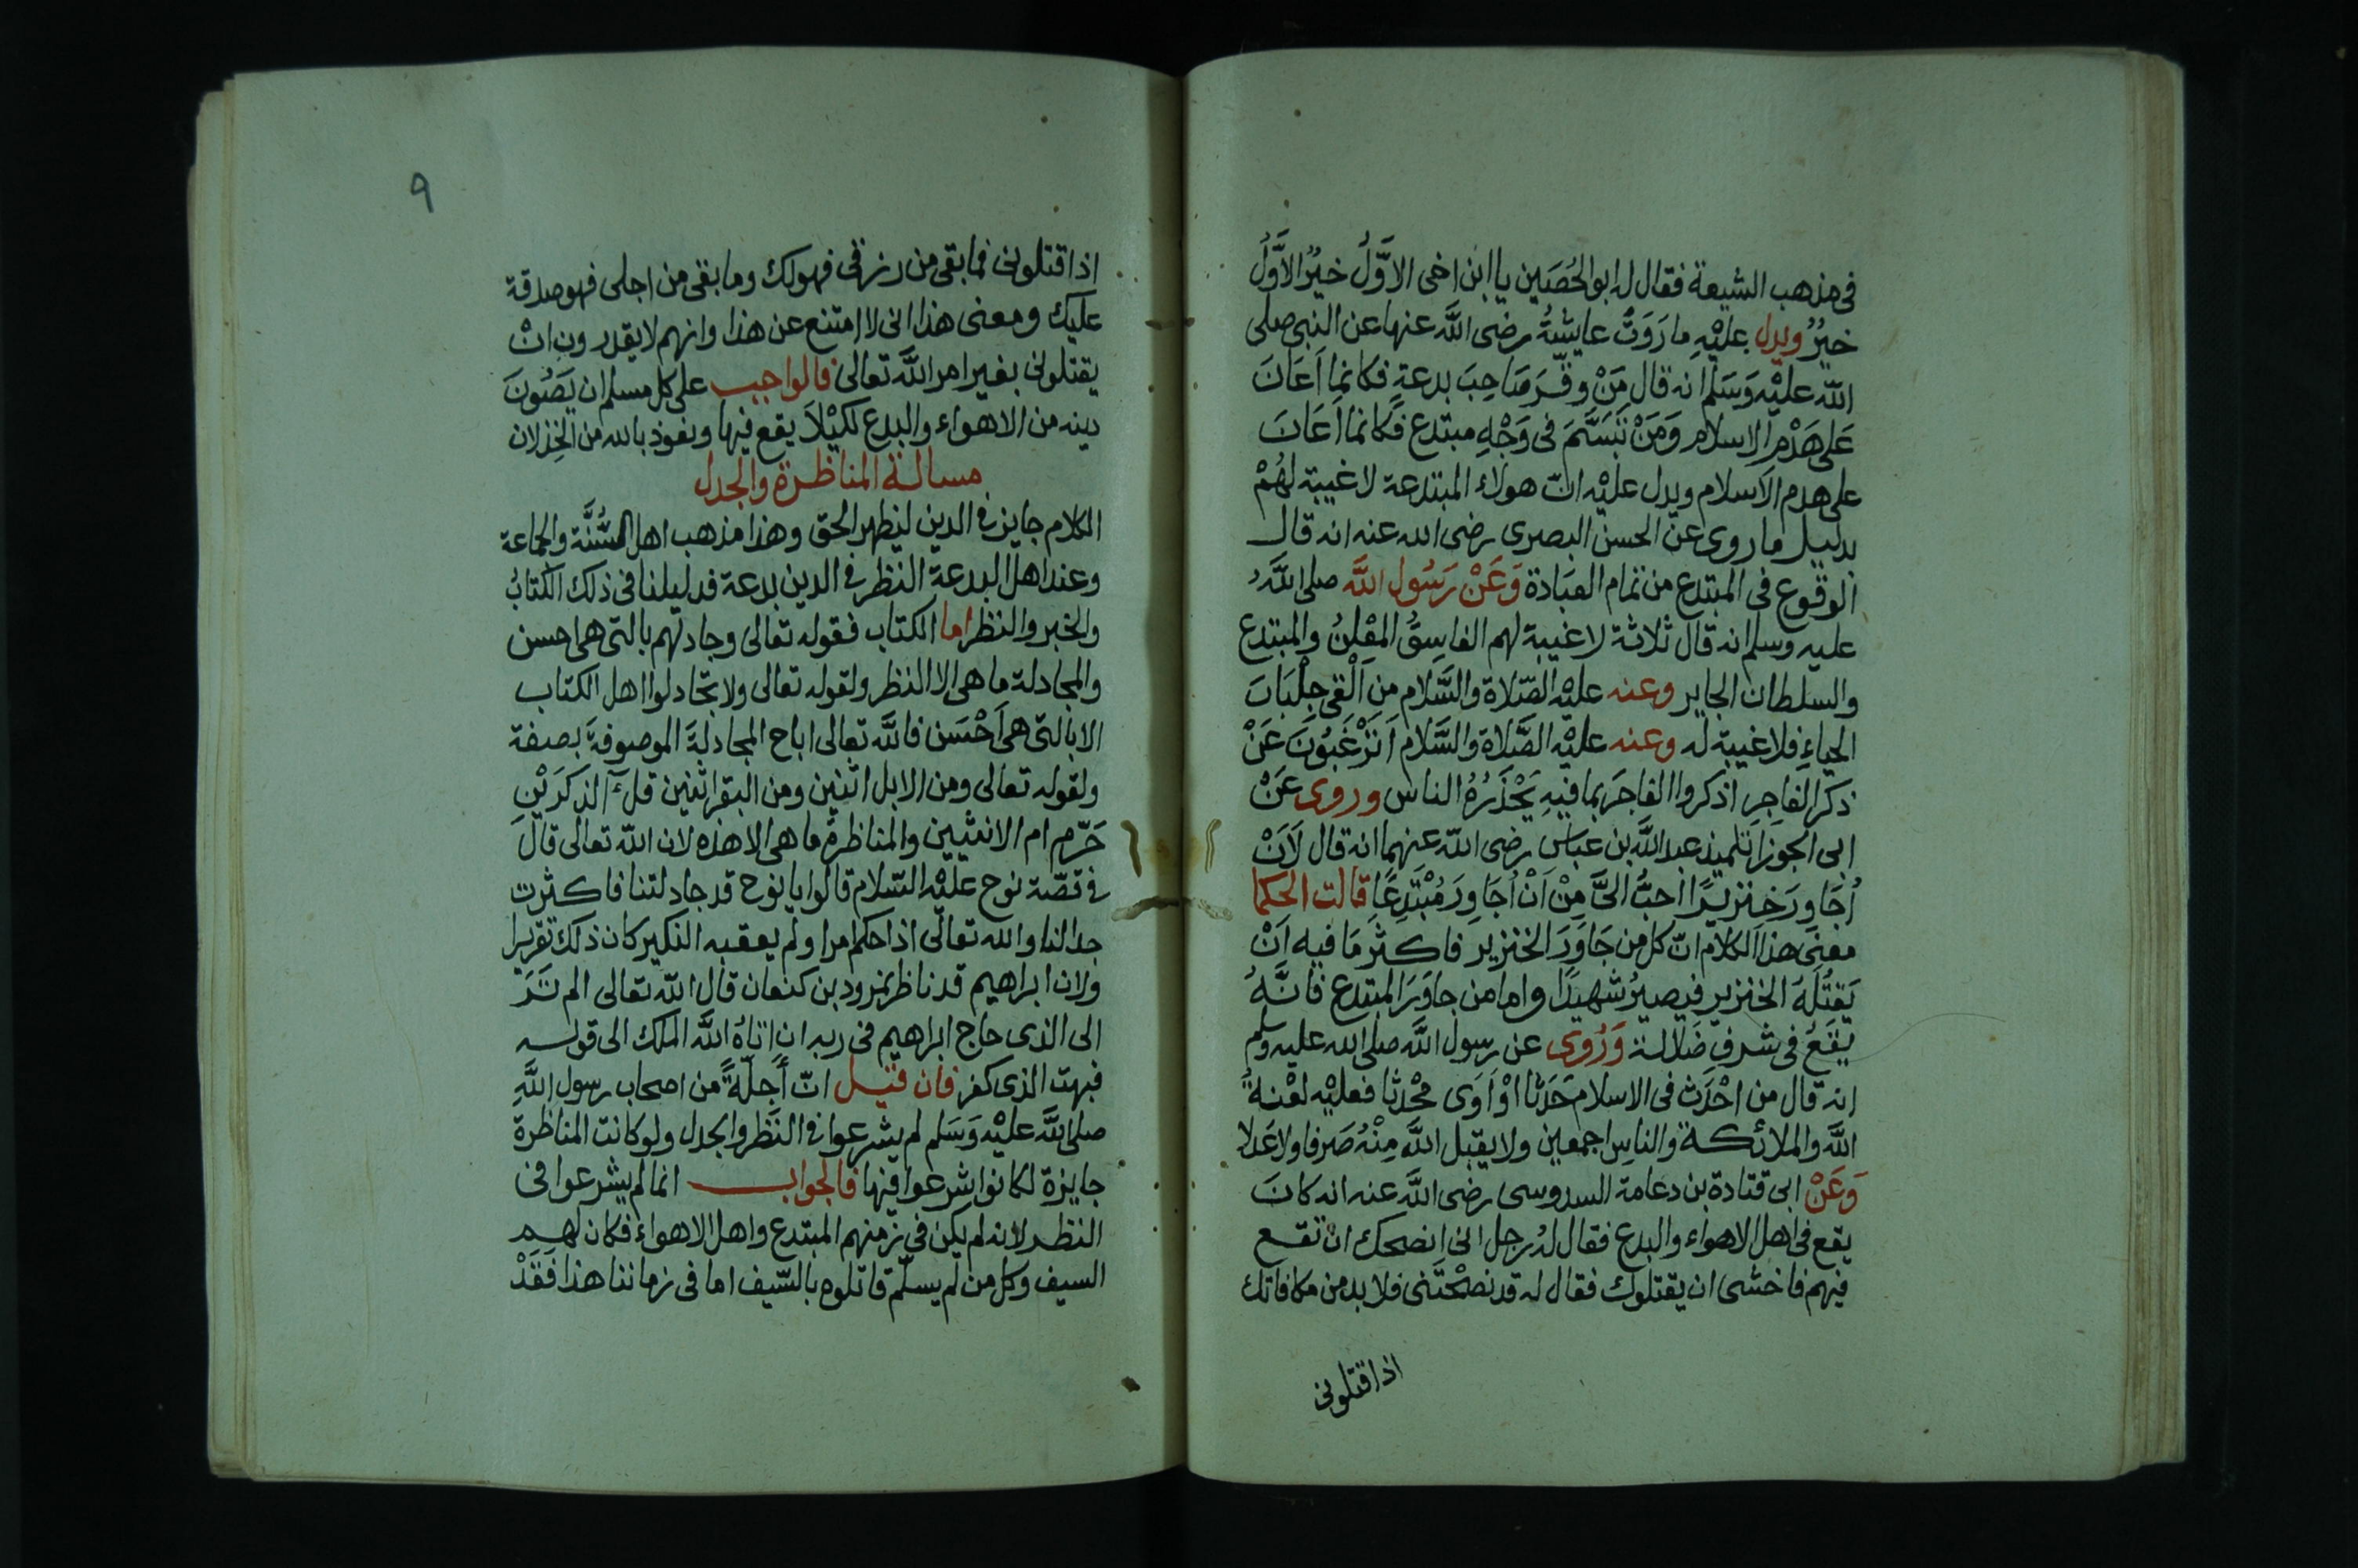 في مذهب الشيعة فقال له ابو الحُصَين يا ابن اخى الاوَّلُ خيرُ الاَوَّلُ
خيرُ ويدل عليْهِ ما رَوَتْ عايشةُ رضى اللَّه عنها عن النبى صلى
اللّه عليْه وَسَلم انه قال مَنْ وقَّرَ صَاحِبَ بدعةٍ فكانما اَعَانَ
عَلى هَدْم الاسلام وَمَنْ تَبَسَّمَ فى وَجْهِ مبتدع فكانما اَعَانَ
على هدم الاسلام ويدل عليْه انّ هولاء المبتدعة لا غيبة لهُمْ
بدليل ما روى عن الحسن البصرى رضى الله عنه انه قال
الوقوع فى المبتدع من تمام العبَادة وَعَنْ رَسُول اللَّه صلى اللَّهُ
عليه وسلم انه قال ثلاثة لا غيبة لهم الفاسِقُ المعْلنُ والمبتدع
والسلطان الجاير وعنه عليْه الصّلاة والسَّلام مَن اَلْقى جِلْبَابَ
الحياءِ فلا غيبة له وعنه عليْه الصَّلاة والسَّلام اَتَرْغَبُونَ عَنْ
ذكر الفاجِرِ اذكروا الفاجَر بما فيهِ يَحْذَرُهُ الناس وروى عَنْ
ابى الجوزا تلميذ عبد اللَّه بن عباس رضى اللّه عنهما انه قال لَاَنْ
اُجَاوِرَ خنزيرًا احبُّ الىَّ مِنْ اَنْ اُجَاوِرَ مُبْتَدِعًا قالت الحكما
معنى هذا الكلام انّ كل من جَاوَرَ الخنزير فاكثرَ مَا فيه اَنْ
يَقتُلَهُ الخنزير فيصيرُ شهيدًا واما من جاوَرَ المبتدع فانَّهُ
يَقَعُ فى شرفِ ضَلالة وَرُوى عن رسول اللَّه صلى الله عليه وسلم
انه قال من احْدَث فى الاسلام حَدَثا اوْ اَوَى محْدثا فعليْه لعْنةُ
اللَّه والملائكة والناسِ اجمعين ولا يقبل اللَّه مِنْهُ صَرفا ولا عَدلا
وَعَنْ ابى قتادة بن دعامة السدوسى رضى اللَّه عنه انه كانَ
يقع فى اهل الاهواء والبدع فقال لهُ رجل انى انصحك انْ تقع
فيهم فاخشى ان يقتلوك فقال له قد نصحْتَنى فلا بد من مكافاتك
اذا قتلونى
٩
اذا قتلونى فما بقى من رزقى فهو لك وما بقى من اجلى فهو صدقة
عليك ومعنى هذا انى لا امتنع عن هذا وانهم لا يقدرون انْ
يقتلونى بغير امر اللَّه تعالى فالواجب على كل مسلم ان يَصُونَ
دينه من الاهواء والبدع لكيْلاَ يقع فيها ونعوذ بالله من الخِذلان
مسالة المناظرة والجدل
الكلام جايز فى الدين ليظهر الحق وهذا مذهب اهل السُّنَّة والجماعة
وعند اهل البدعة النظر فى الدين بدعة فدليلنا فى ذلك الكتابُ
والخبر والنظر اما الكتاب فقوله تعالى وجادلهم بالتى هى احسن
والمجادلة ما هى الا النظر ولقوله تعالى ولا تجادلوا اهل الكتاب
الا بالتى هى اَحْسَن فاللَّه تعالى اباح المجادلةَ الموصوفةَ بصفة
ولقوله تعالى ومن الابل اثنين ومن البقر اثنين قل آلذكَرَيْنِ
حَرّم ام الانثيين والمناظرةُ ما هى الا هذه لان اللّه تعالى قالَ
فى قصّة نوح عليْه السّلام قالوا يا نوح قد جادلتنا فاكثرت
جدالنا والله تعالى اذا حكم امرا ولم يعقبه النكير كان ذلك تقريرا
ولان ابراهيم قد ناظر نمرود بن كنعان قال اللّه تعالى الم تَرَ
الى الذى حاج ابراهيم فى ربه ان اتاهُ اللَّه الملك الى قوله
فبهت الذى كفر فان قيل انّ أَجلّةً من اصحاب رسول اللَّهِ
صلى اللَّه عليْه وَسَلم لم يشرعوا فى النَظر والجدل ولو كانت المناظرة
جايزة لكانوا شرعوا فيها فالجواب انما لم يشرعوا فى
النظر لانه لم يكن فى زمنهم المبتدع واهل الاهواء فكان لهم
السيف وكل من لم يسلّم قاتلوه بالسّيف اما فى زماننا هذا فَقَدْ